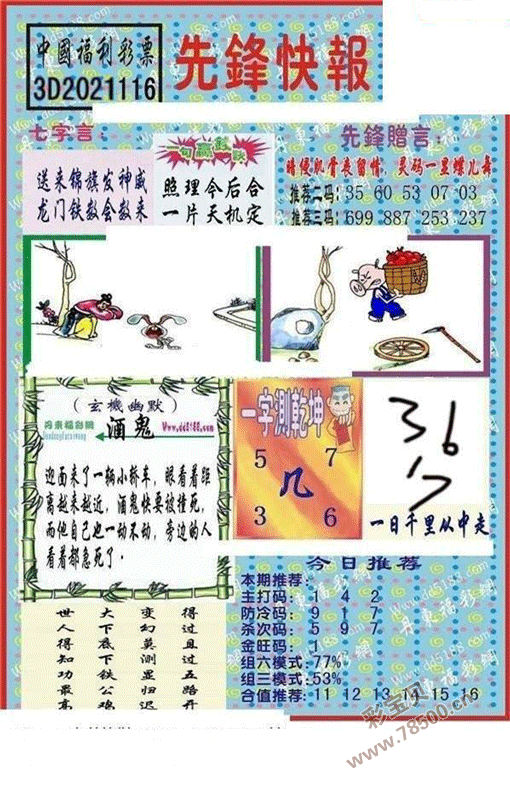 中國福利彩票
3D2021116
先鋒快報
七字言：
送来锦旗发神威
龙门铁数会数来
一句赢钱诀
照理今后合
一片天机定
先鋒贈言：
推荐二码：35 60 53 07 03
推荐三码：699 887 253 237
(玄機幽默)
丹東福彩網
Www.dd5188.com
酒鬼
迎面来了一辆小轿车，眼看着距
离越来越近，酒鬼快要被撞死，
而他自己也一动不动，旁边的人
看着都急死了。
一字测乾坤
5 7
几
3 6
36
17
一日千里从中走
世 大 变 得
人 下 幻 过
得 底 莫 且
知 下 测 过
功 铁 显 五
最 公 归 路
高 鸡 迟 开
今日推荐
本期推荐：
主打码：1 4 2
防冷码：9 1 7
杀次码：5 9 7
金旺码：1
组六模式：77%
组三模式：53%
合值推荐：11 12 13 14 15 16
彩宝贝
www.78500.cn